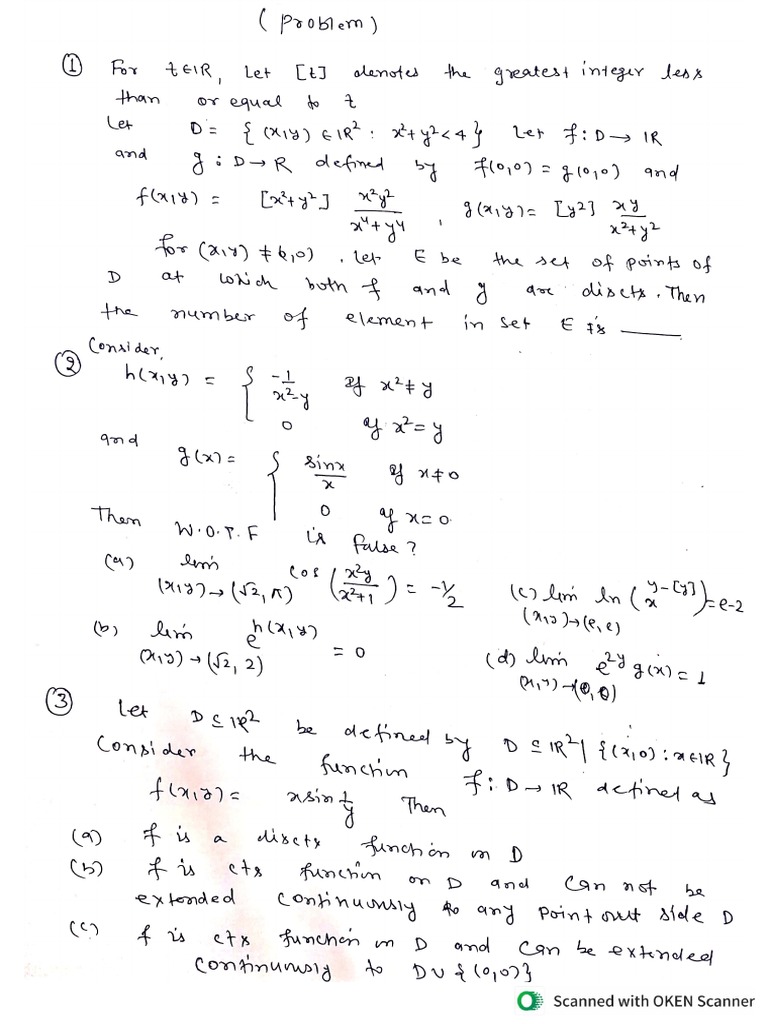 ( Problem )
① For t∈IR, Let [t] denotes the greatest integer less
than or equal to t
Let D = { (x,y) ∈ IR² : x²+y² < 4 } Let f : D → IR
and g : D → R defined by f(0,0) = g(0,0) and
f(x,y) = [x²+y²] x²y²/(x⁴+y⁴) , g(x,y) = [y²] xy/(x²+y²)
for (x,y) ≠ (0,0). Let E be the set of points of
D at which both f and g are discts. Then
the number of element in set E is ____
② Consider,
h(x,y) = { -1/(x²-y) if x² ≠ y
0 if x² = y
and g(x) = { sinx/x if x ≠ 0
0 if x = 0.
Then W.O.T.F is false?
(a) lim (x,y)→(√2,π) cos (x²y/(x²+1)) = -1/2
(c) lim (x,y)→(e,e) ln (x^(y-[y])) = e-2
(b) lim (x,y)→(√2,2) e^h(x,y) = 0
(d) lim (x,y)→(0,0) e^2y g(x) = 1
③ Let D ⊆ IR² be defined by D ⊆ IR² | {(x,0) : x∈IR}
Consider the function f : D → IR defined as
f(x,y) = x sin 1/y Then
(a) f is a discts function on D
(b) f is cts function on D and can not be
extended continuously to any point out side D
(c) f is cts function on D and can be extended
continuously to D∪{(0,0)}
Scanned with OKEN Scanner